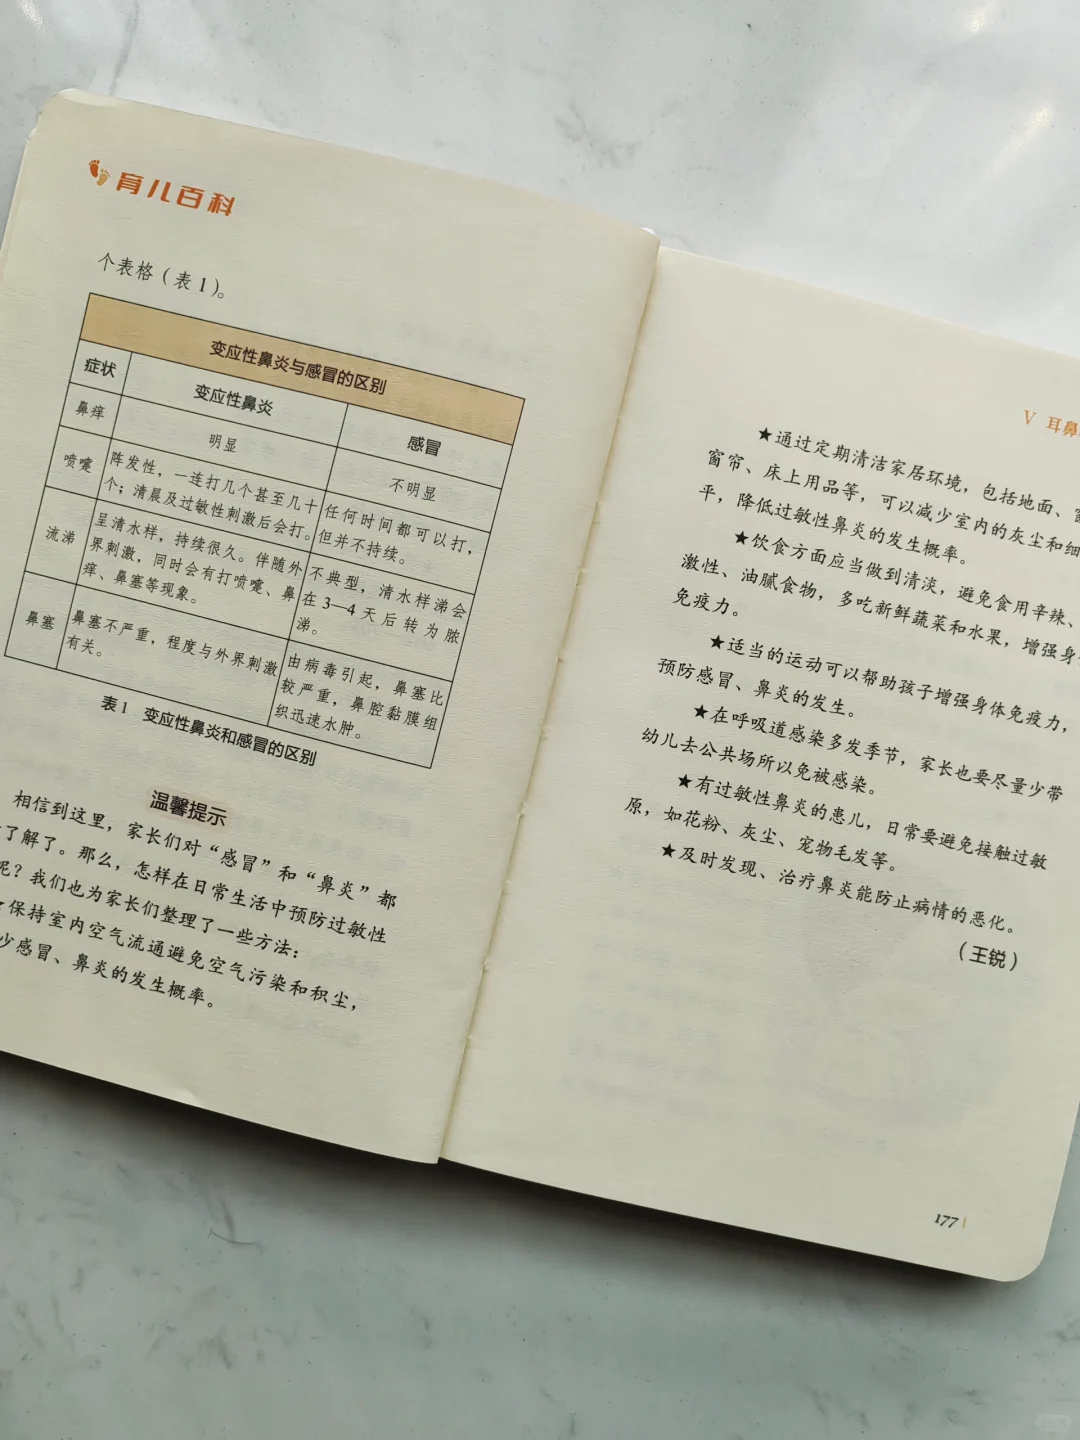 育儿百科
个表格（表1）。
变应性鼻炎与感冒的区别
症状 变应性鼻炎 感冒
鼻痒 明显 不明显
喷嚏 阵发性，一连打几个甚至几十
个；清晨及过敏性刺激后会打。
任何时间都可以打，
但并不持续。
流涕 呈清水样，持续很久。伴随外
界刺激，同时会有打喷嚏、鼻
痒、鼻塞等现象。
不典型，清水样涕会
在3—4天后转为脓
涕。
鼻塞 鼻塞不严重，程度与外界刺激
有关。
由病毒引起，鼻塞比
较严重，鼻腔黏膜组
织迅速水肿。
表1 变应性鼻炎和感冒的区别
温馨提示
相信到这里，家长们对“感冒”和“鼻炎”都
了解了。那么，怎样在日常生活中预防过敏性
呢？我们也为家长们整理了一些方法：
保持室内空气流通避免空气污染和积尘，
少感冒、鼻炎的发生概率。
V 耳鼻
★通过定期清洁家居环境，包括地面、
窗帘、床上用品等，可以减少室内的灰尘和细
平，降低过敏性鼻炎的发生概率。
★饮食方面应当做到清淡，避免食用辛辣、
激性、油腻食物，多吃新鲜蔬菜和水果，增强身
免疫力。
★适当的运动可以帮助孩子增强身体免疫力，
预防感冒、鼻炎的发生。
★在呼吸道感染多发季节，家长也要尽量少带
幼儿去公共场所以免被感染。
★有过敏性鼻炎的患儿，日常要避免接触过敏
原，如花粉、灰尘、宠物毛发等。
★及时发现、治疗鼻炎能防止病情的恶化。
（王锐）
177